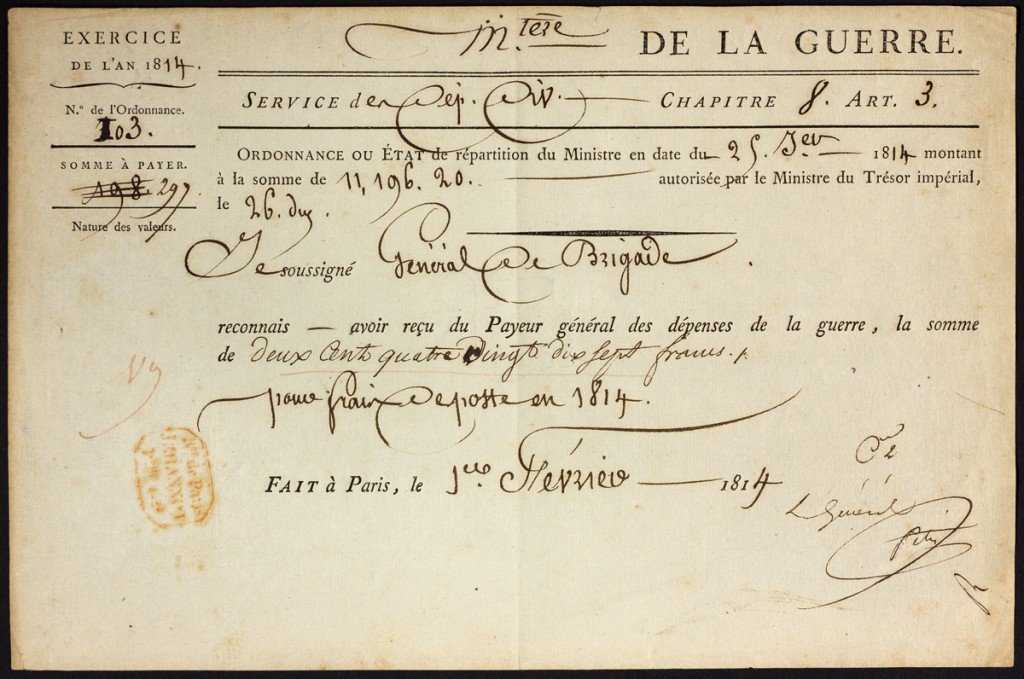 EXERCICE
DE L'AN 1814.
N.º de l'Ordonnance.
103.
SOMME À PAYER.
198. 297
Nature des valeurs.
M.tère DE LA GUERRE.
SERVICE des Dép. Div. CHAPITRE 8. ART. 3.
ORDONNANCE OU ÉTAT de répartition du Ministre en date du 25. Jer 1814 montant
à la somme de 11,196.20. autorisée par le Ministre du Trésor impérial,
le 26. du.
Je soussigné Général De Brigade.
reconnais — avoir reçu du Payeur général des dépenses de la guerre, la somme
de deux Cent quatre Vingt dix sept francs.
pour frais De poste en 1814.
FAIT à Paris, le 1er Février 1814
Le Général
Petit